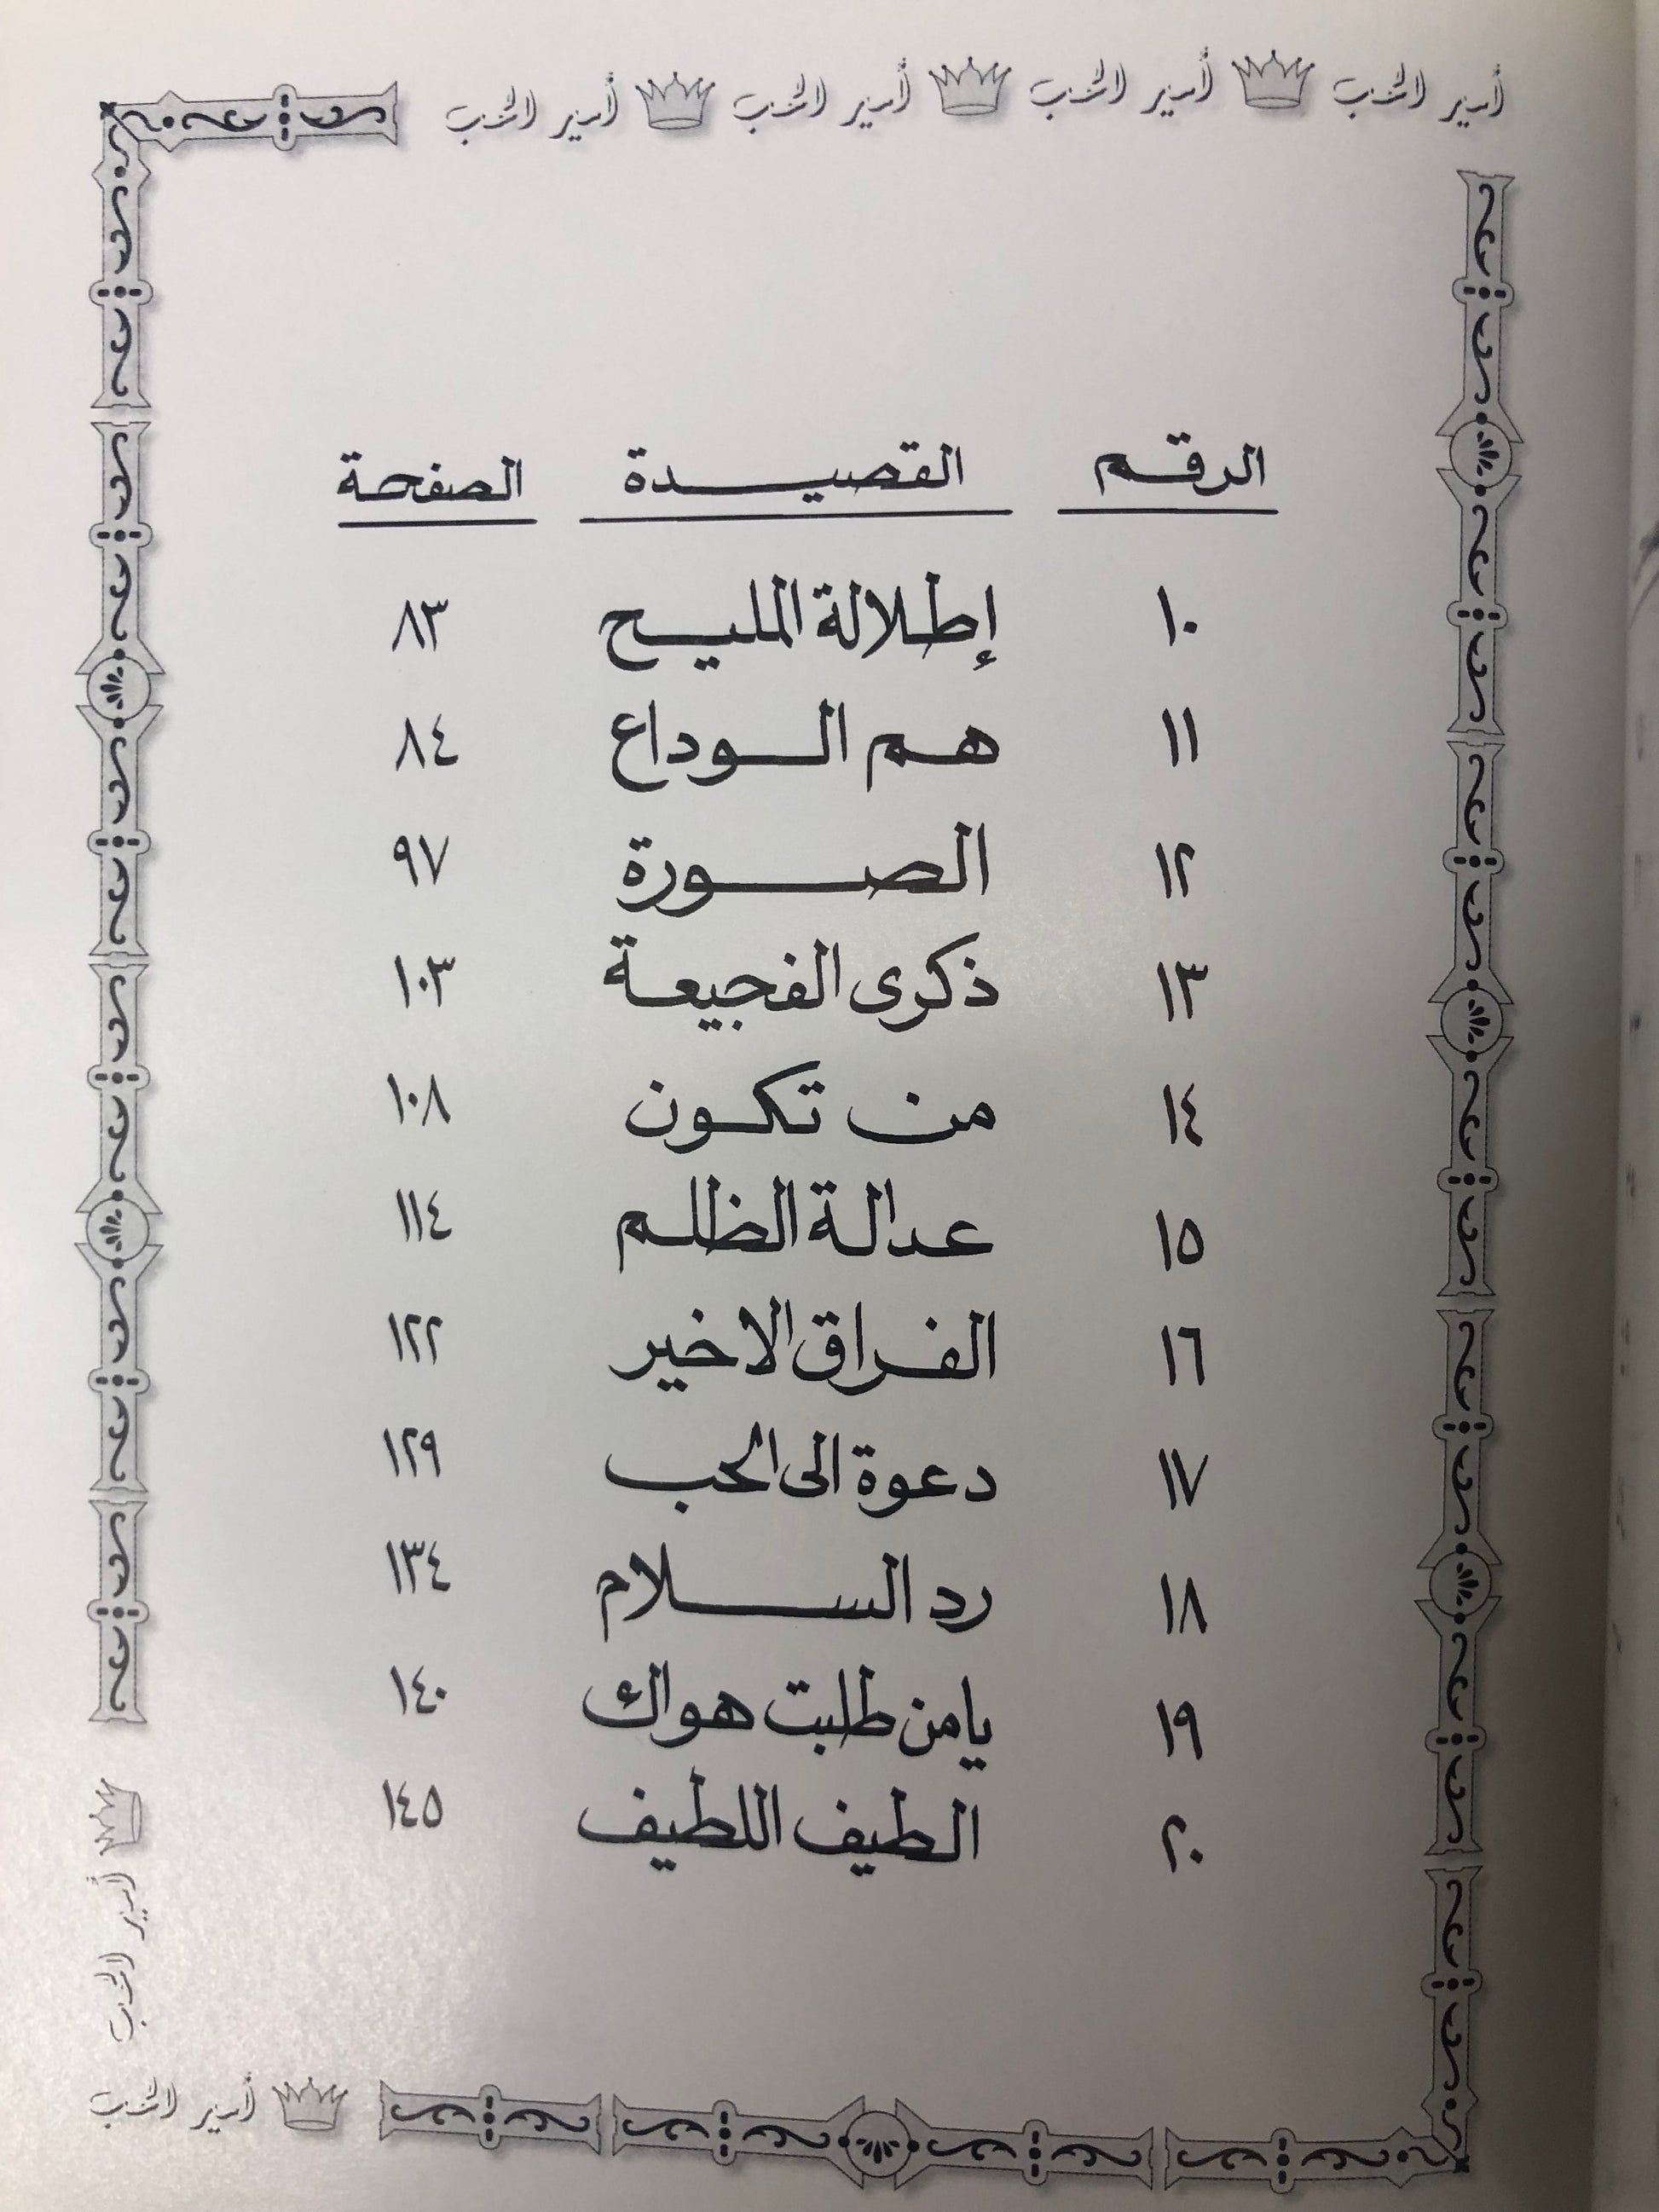 أمير الحب أمير الحب أمير الحب أمير الحب
الرقم القصيدة الصفحة
١٠ إطلالة المليح ٨٣
١١ هم الوداع ٨٤
١٢ الصورة ٩٧
١٣ ذكرى الفجيعة ١٠٣
١٤ من تكون ١٠٨
١٥ عدالة الظلم ١١٤
١٦ الفراق الاخير ١٢٢
١٧ دعوة الى الحب ١٢٩
١٨ رد السلام ١٣٤
١٩ يامن طلبت هواك ١٤٠
٢٠ الطيف اللطيف ١٤٥
أمير الحب
أمير الحب